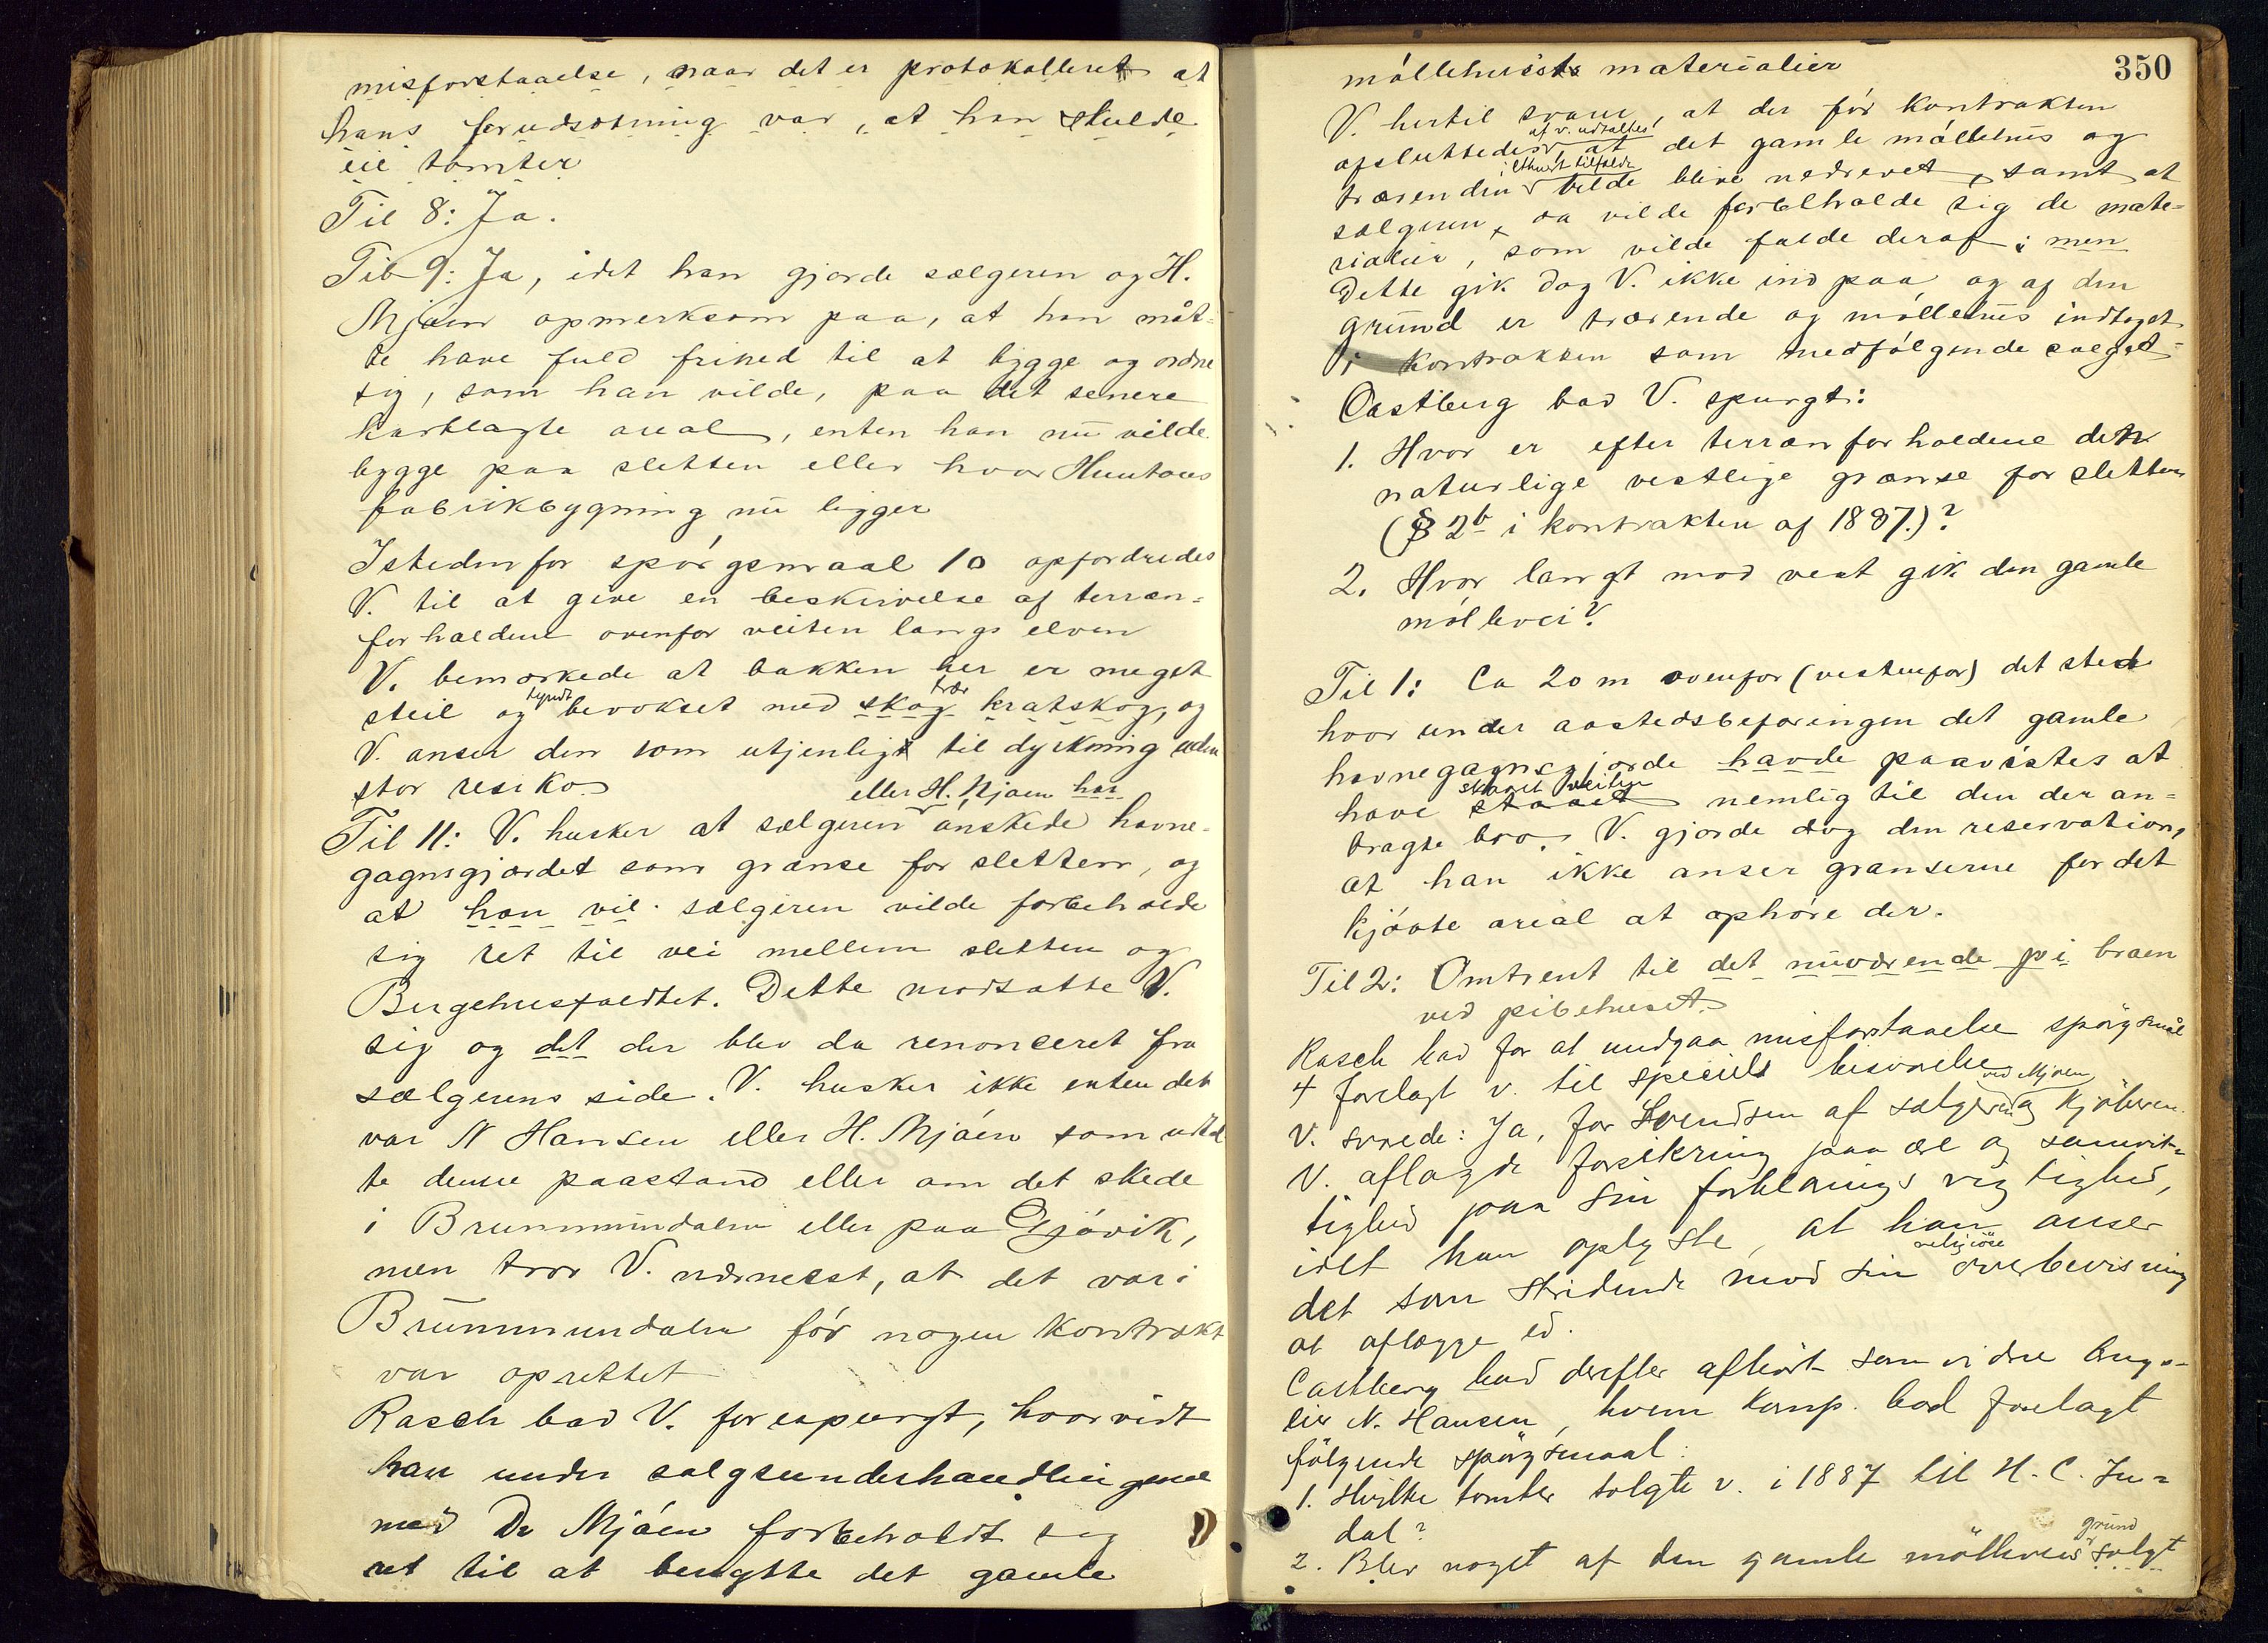 misforstaaelse, naar det er protokolleret at
hans forudsætning var, at han skulde
eie tomter
Til 8: Ja.
Til 9: Ja, idet han gjorde sælgeren og H.
Mjøen opmerksom paa, at han måt-
te have fuld frihed til at bygge og ordne
sig, som han vilde, paa det senere
kartlagte areal, enten han nu vilde
bygge paa sletten eller hvor Huntons
fabrikbygning nu ligger
Istedenfor spørgsmaal 10 opfordredes
V. til at give en beskrivelse af terræn-
forholdene ovenfor veiten langs elven
V. bemærkede at bakken her er meget
steil og tyndt bevokset med skog trær kratskog, og
V. anser den som utjenlig til dyrkning uden
stor resiko
Til 11: V. husker at sælgeren eller H. Mjøen har ønskede havne-
gagnsgjærdet som grænse for sletten, og
at han vil sælgeren vilde forbeholde
sig ret til vei mellem sletten og
Bergehusfaldtet. Dette modsatte V.
sig og det der blev da renonceret fra
sælgerens side. V. husker ikke enten det
var N Hansen eller H. Mjøen som udtal
te denne paastand eller om det skede
i Brummundalen eller paa Gjøvik,
men tror V. nærmest, at det var i
Brummundalen før nogen kontrakt
var oprettet
Rasch bad V. forespurgt, hvorvidt
han under salgsunderhandlingerne
med Dr Mjøen forbeholdt sig
ret til at benytte det gamle
350
møllehusets materialier
V. hertil svarer, at der før kontrakten
afsluttedes af v. udtaltes, at det gamle møllehus og
trærenden i ethvert tilfælde vilde blive nedrevet, samt at
sælgeren da vilde forbeholde sig de mate-
rialier, som vilde falde deraf; men
Dette gik dog V. ikke ind paa og af den
grund er trærende og møllehus indtaget
i kontrakten som medfølgende salget
Castberg bad V. spurgt:
1. Hvor er efter terrænforholdene den
naturlige vestlige grænse for sletten
(§ 2b i kontrakten af 1887.)?
2. Hvor langt mod vest gik den gamle
møllevei?
Til 1: Ca 20 m ovenfor (vestenfor) det sted
hvor under aastedsbefaringen det gamle
havnegagnsgjærde havde paavistes at
have staaet skaaret veiten nemlig til den der an-
bragte bro. V. gjorde dog den reservation,
at han ikke anser grænserne for det
kjøbte areal at ophøre der.
Til 2: Omtrent til det nuværende pi broen
ved pibehuset.
Rasch bad for at undgaa misforstaaelse spørgsmål
4 forelagt v. til speciel besvarelse
V. svarede: Ja, for Svendsen af sælgeren ved Mjøen og kjøberen.
V. aflagde forsikring paa ære og samvit-
tighed paa sin forklarings rigtighed,
idet han oplyste, at han anser
det som stridende mod sin religiöse overbevisning
at aflægge ed.
Castberg bad derefter afhørt som vidne brugs-
eier N. Hansen, hvem komp. bad forelagt
følgende spørgsmaal:
1. Hvilke tomter solgte v. i 1887 til H. C. In-
dal?
2. Blev noget af den gamle mölleveis grund solgt